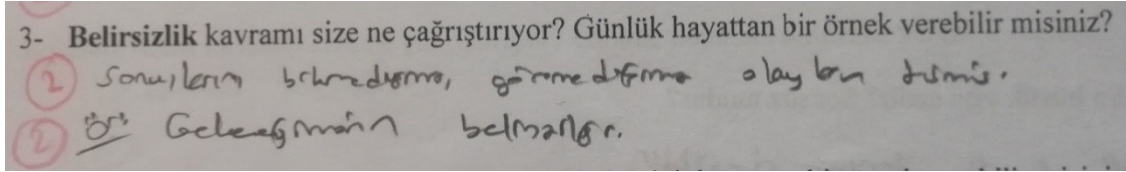 3- Belirsizlik kavramı size ne çağrıştırıyor? Günlük hayattan bir örnek verebilir misiniz?
2 Sonuçlarını bilmediğimiz, göremediğimiz olayların
2 Ör: Geleceğimizin